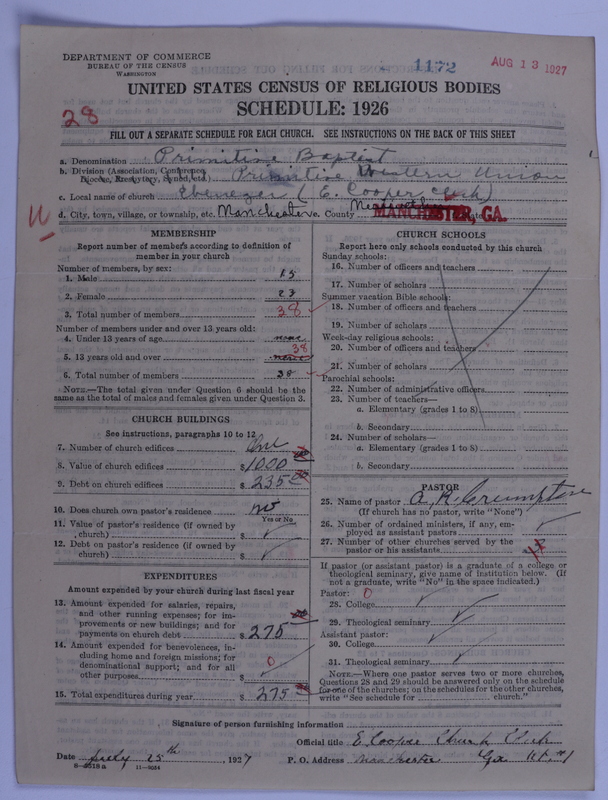 DEPARTMENT OF COMMERCE
BUREAU OF THE CENSUS
WASHINGTON
1172
AUG 13 1927
UNITED STATES CENSUS OF RELIGIOUS BODIES
SCHEDULE: 1926
28
FILL OUT A SEPARATE SCHEDULE FOR EACH CHURCH. SEE INSTRUCTIONS ON THE BACK OF THIS SHEET
a. Denomination Primitive Baptist
b. Division (Association, Conference, Diocese, Presbytery, Synod, etc.) Primitive Western Union
c. Local name of church Ebenezer (E. Cooper Clerk)
d. City, town, village, or township, etc. Manchester e. County Meriwether MANCHESTER, GA.
MEMBERSHIP
Report number of members according to definition of member in your church
Number of members, by sex:
1. Male 15
2. Female 23
3. Total number of members 38
Number of members under and over 13 years old:
4. Under 13 years of age none
5. 13 years old and over 38
6. Total number of members 38
NOTE.—The total given under Question 6 should be the same as the total of males and females given under Question 3.
CHURCH BUILDINGS
See instructions, paragraphs 10 to 12
7. Number of church edifices One
8. Value of church edifices $1000
9. Debt on church edifices $235
10. Does church own pastor's residence no
Yes or No
11. Value of pastor's residence (if owned by church) $
12. Debt on pastor's residence (if owned by church) $
EXPENDITURES
Amount expended by your church during last fiscal year
13. Amount expended for salaries, repairs, and other running expenses; for improvements or new buildings; and for payments on church debt $275
14. Amount expended for benevolences, including home and foreign missions; for denominational support; and for all other purposes $ 0
15. Total expenditures during year $275
CHURCH SCHOOLS
Report here only schools conducted by this church
Sunday schools:
16. Number of officers and teachers
17. Number of scholars
Summer vacation Bible schools:
18. Number of officers and teachers
19. Number of scholars
Week-day religious schools:
20. Number of officers and teachers
21. Number of scholars
Parochial schools:
22. Number of administrative officers
23. Number of teachers—
a. Elementary (grades 1 to 8)
b. Secondary
24. Number of scholars—
a. Elementary (grades 1 to 8)
b. Secondary
PASTOR
25. Name of pastor A. R. Crumpton
(If church has no pastor, write "None")
26. Number of ordained ministers, if any, employed as assistant pastors
27. Number of other churches served by the pastor or his assistants
If pastor (or assistant pastor) is a graduate of a college or theological seminary, give name of institution below. (If not a graduate, write "No" in the space indicated.)
Pastor: 0
28. College
29. Theological seminary
Assistant pastor:
30. College
31. Theological seminary
NOTE.—Where one pastor serves two or more churches, Questions 28 and 29 should be answered only on the schedule for one of the churches; on the schedules for the other churches, write "See schedule for church."
Signature of person furnishing information
Official title E Cooper Church Clerk
Date July 25th, 1927 P. O. Address Manchester Ga
8-5518a 11-9094